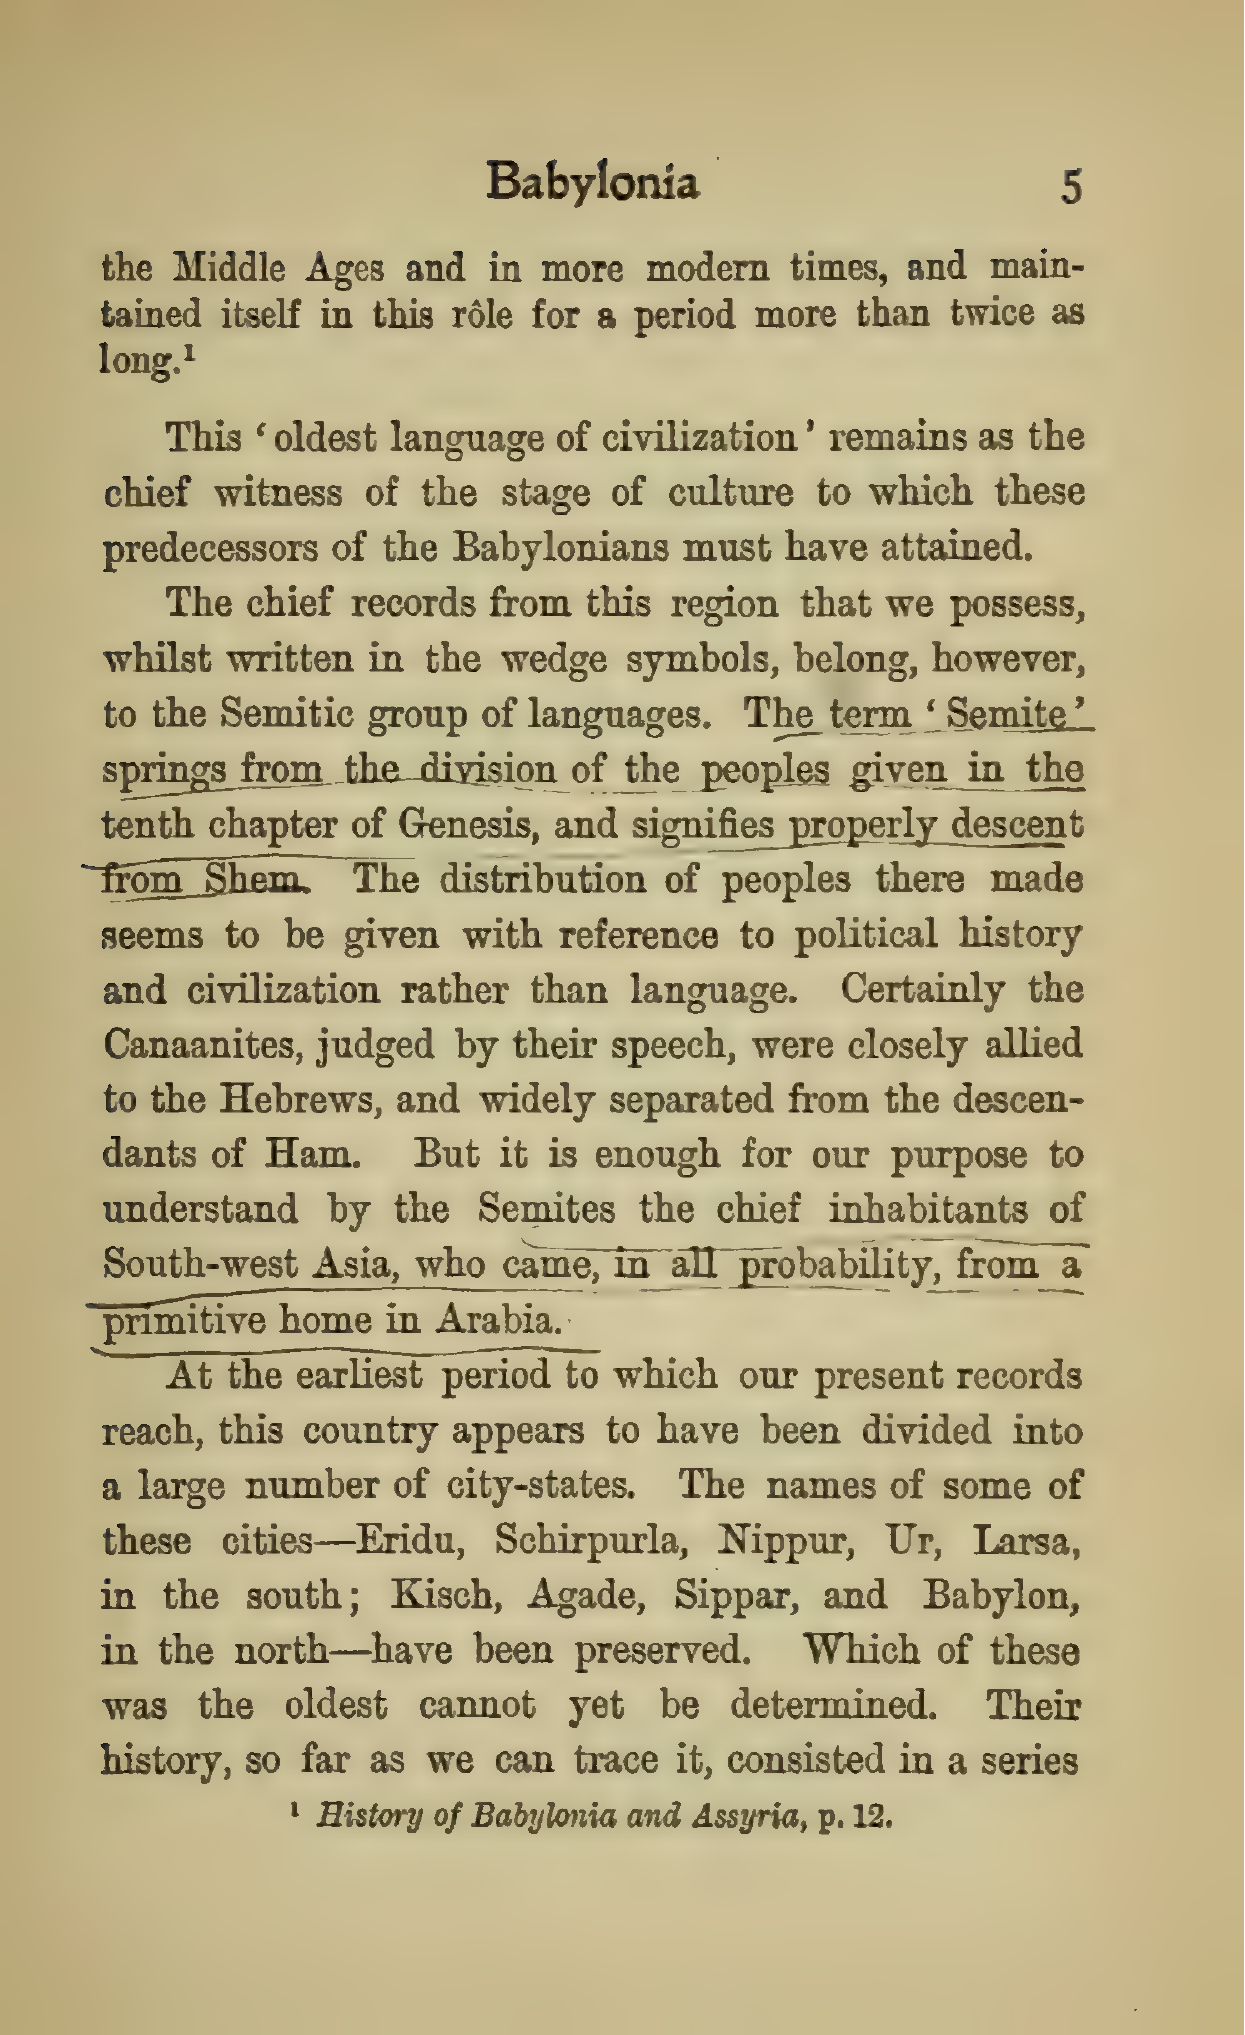 Babylonia 5
the Middle Ages and in more modern times, and main-
tained itself in this rôle for a period more than twice as
long.¹
This ‘oldest language of civilization’ remains as the
chief witness of the stage of culture to which these
predecessors of the Babylonians must have attained.
The chief records from this region that we possess,
whilst written in the wedge symbols, belong, however,
to the Semitic group of languages. The term ‘Semite’
springs from the division of the peoples given in the
tenth chapter of Genesis, and signifies properly descent
from Shem. The distribution of peoples there made
seems to be given with reference to political history
and civilization rather than language. Certainly the
Canaanites, judged by their speech, were closely allied
to the Hebrews, and widely separated from the descen-
dants of Ham. But it is enough for our purpose to
understand by the Semites the chief inhabitants of
South-west Asia, who came, in all probability, from a
primitive home in Arabia.
At the earliest period to which our present records
reach, this country appears to have been divided into
a large number of city-states. The names of some of
these cities—Eridu, Schirpurla, Nippur, Ur, Larsa,
in the south; Kisch, Agade, Sippar, and Babylon,
in the north—have been preserved. Which of these
was the oldest cannot yet be determined. Their
history, so far as we can trace it, consisted in a series
¹ History of Babylonia and Assyria, p. 12.